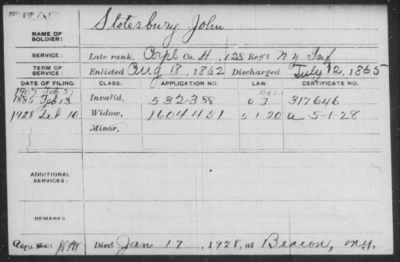 NAME OF SOLDIER: Stotesbury, John
SERVICE: Late rank, Corpl Co. H, 128 Reg't N.Y. Inf
TERM OF SERVICE: Enlisted Aug 18, 1862 Discharged July 12, 1865
DATE OF FILING. CLASS. APPLICATION NO. LAW. CERTIFICATE NO.
1907
1885 Feb 13 Invalid, 532388 317646
1928 Feb 10 Widow, 1604451 5-1-20 a 5-1-28
Minor,
ADDITIONAL SERVICES:
REMARKS:
Died Jan 17, 1928, at Beacon, N.Y.